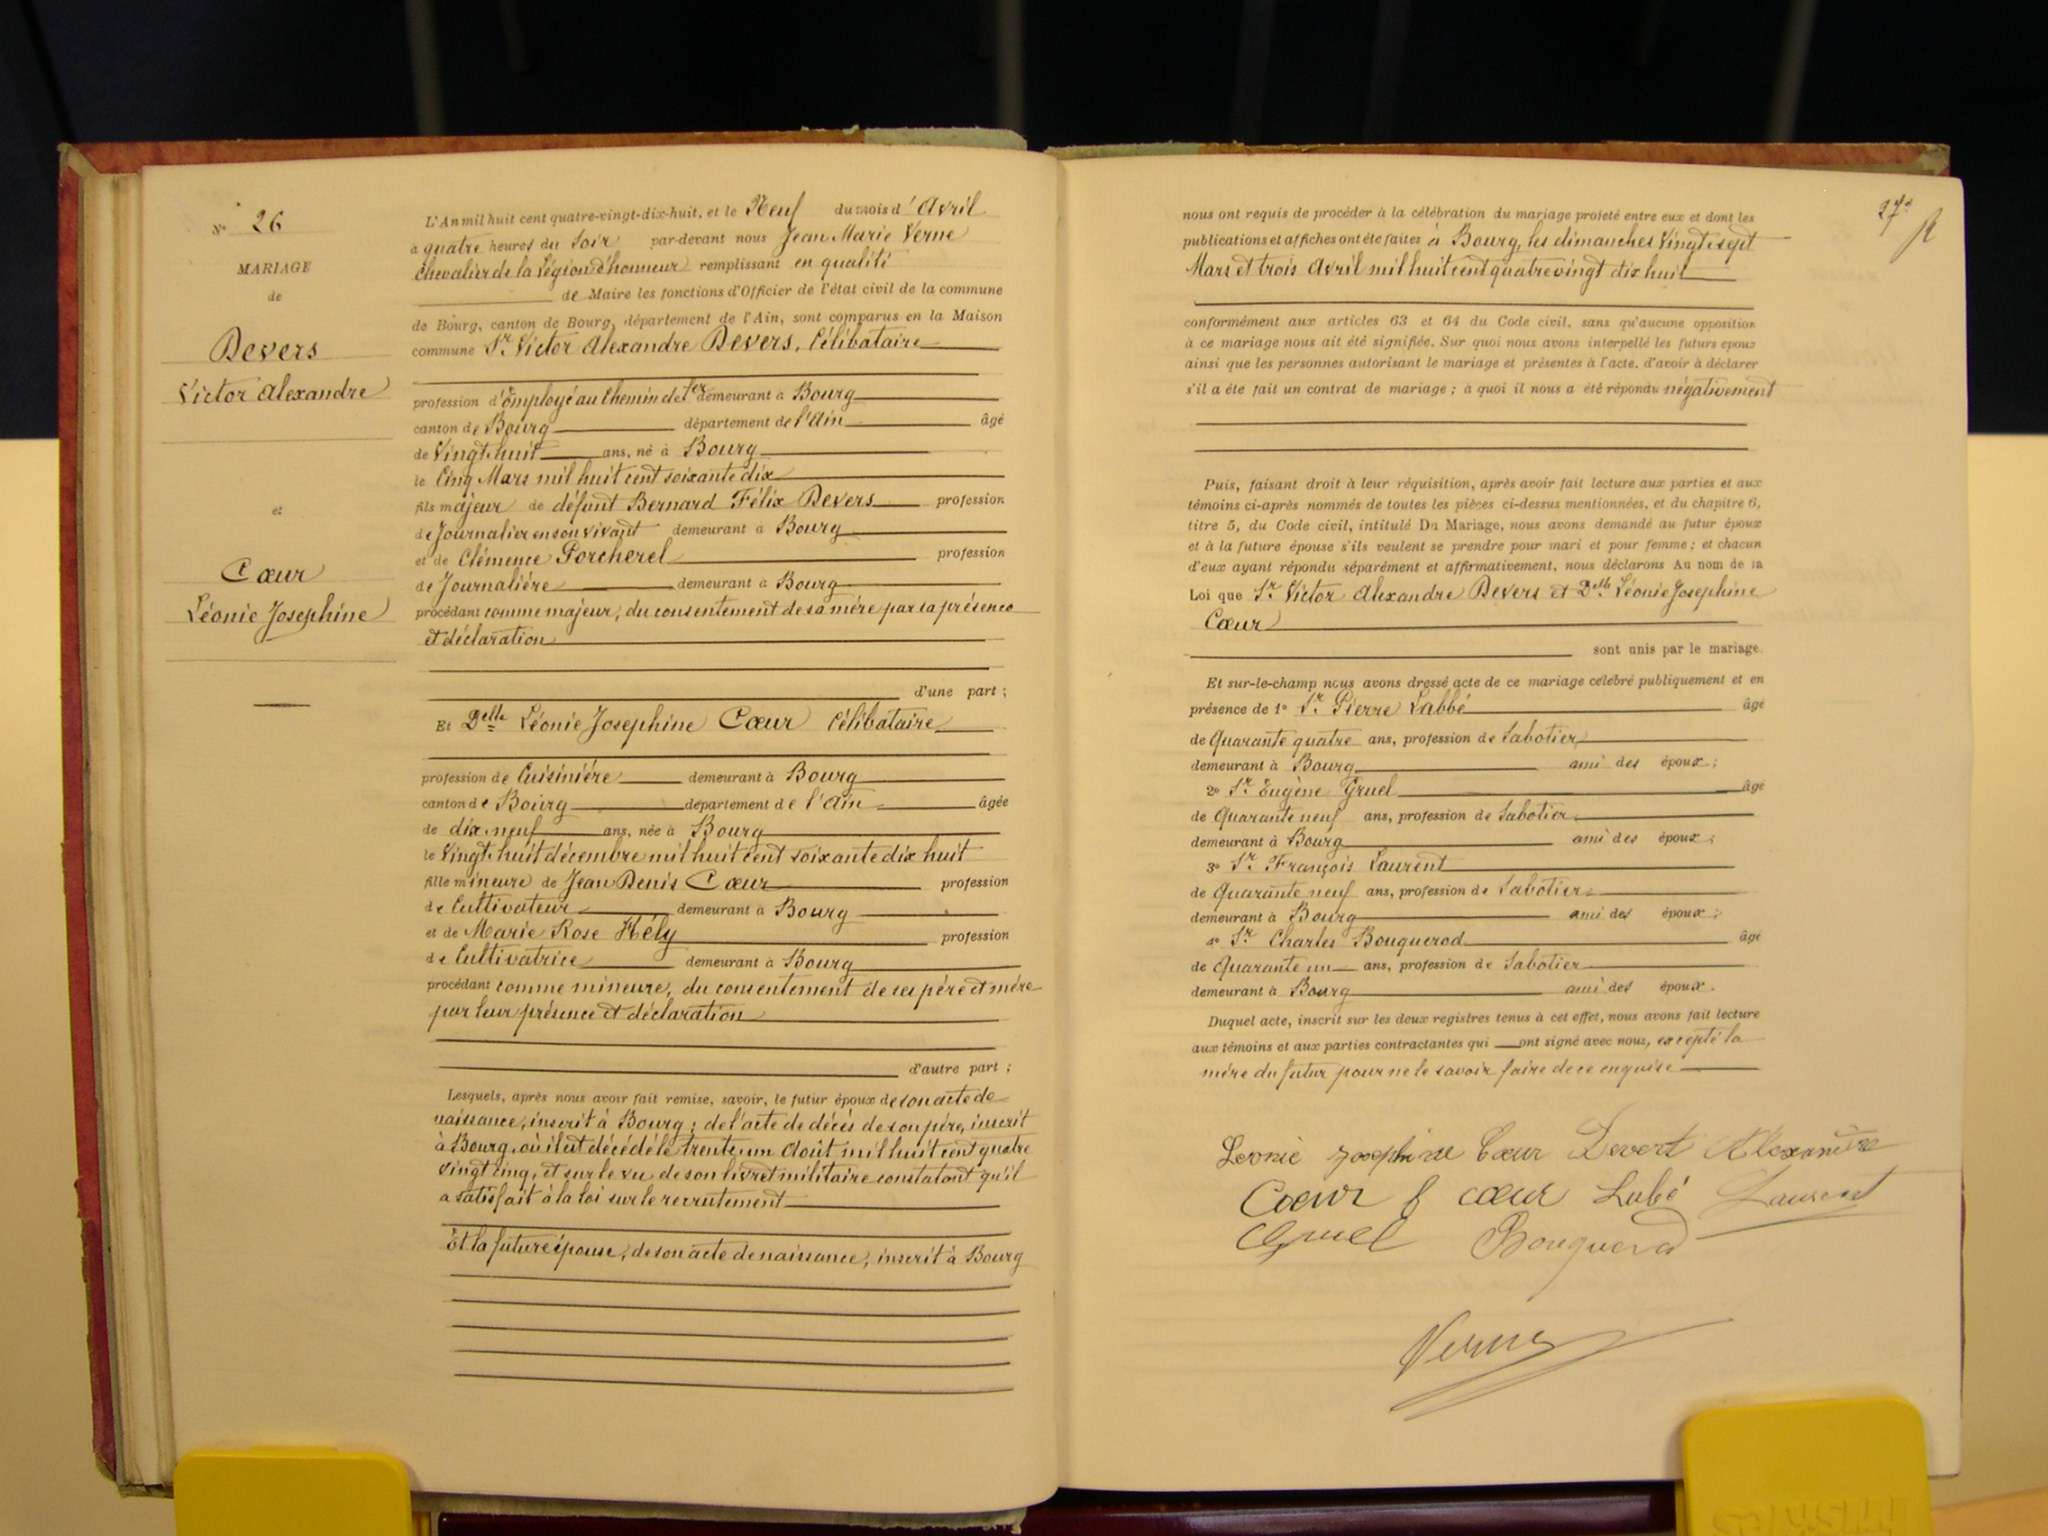 N° 26
MARIAGE
de
Devers
Victor Alexandre
et
Cœur
Léonie Josephine
L'An mil huit cent quatre-vingt-dix-huit, et le Neuf du mois d'Avril
à quatre heures du Soir par-devant nous Jean Marie Verne
Chevalier de la Légion d'honneur remplissant en qualité
de Maire les fonctions d'Officier de l'état civil de la commune
de Bourg, canton de Bourg, département de l'Ain, sont comparus en la Maison
commune Sr. Victor Alexandre Devers, Célibataire
profession d'Employé au Chemin de fer demeurant à Bourg
canton de Bourg département de l'Ain âgé
de Vingt-huit ans, né à Bourg
le Cinq Mars mil huit cent soixante dix
fils majeur de défunt Bernard Félix Devers profession
de Journalier en son vivant demeurant à Bourg
et de Clémence Porcherel profession
de Journalière demeurant à Bourg
procédant comme majeur, du consentement de sa mère par sa présence
et déclaration
d'une part ;
Et Delle Léonie Josephine Cœur Célibataire
profession de Cuisinière demeurant à Bourg
canton de Bourg département de l'Ain âgée
de dix-neuf ans, née à Bourg
le Vingt-huit décembre mil huit cent soixante dix huit
fille mineure de Jean Denis Cœur profession
de Cultivateur demeurant à Bourg
et de Marie Rose Hély profession
de Cultivatrice demeurant à Bourg
procédant comme mineure, du consentement de ses père et mère
par leur présence et déclaration
d'autre part ;
Lesquels, après nous avoir fait remise, savoir, le futur époux de son acte de
naissance, inscrit à Bourg ; de l'acte de décès de son père, inscrit
à Bourg, où il est décédé le trente un Août mil huit cent quatre
vingt cinq, et sur le vu de son livret militaire constatant qu'il
a satisfait à la loi sur le recrutement
Et la future épouse, de son acte de naissance, inscrit à Bourg
27e
nous ont requis de procéder à la célébration du mariage projeté entre eux et dont les
publications et affiches ont été faites à Bourg, les dimanches Vingt-sept
Mars et trois Avril mil huit cent quatre vingt dix huit
conformément aux articles 63 et 64 du Code civil, sans qu'aucune opposition
à ce mariage nous ait été signifiée. Sur quoi nous avons interpellé les futurs époux
ainsi que les personnes autorisant le mariage et présentes à l'acte, d'avoir à déclarer
s'il a été fait un contrat de mariage ; à quoi il nous a été répondu négativement
Puis, faisant droit à leur réquisition, après avoir fait lecture aux parties et aux
témoins ci-après nommés de toutes les pièces ci-dessus mentionnées, et du chapitre 6,
titre 5, du Code civil, intitulé Du Mariage, nous avons demandé au futur époux
et à la future épouse s'ils veulent se prendre pour mari et pour femme ; et chacun
d'eux ayant répondu séparément et affirmativement, nous déclarons Au nom de la
Loi que Sr. Victor Alexandre Devers et Delle Léonie Josephine
Cœur
sont unis par le mariage.
Et sur-le-champ nous avons dressé acte de ce mariage célébré publiquement et en
présence de 1° Sr. Pierre Labbé âgé
de Quarante quatre ans, profession de Sabotier
demeurant à Bourg ami des époux ;
2° Sr. Eugène Gruel âgé
de Quarante neuf ans, profession de Sabotier
demeurant à Bourg ami des époux ;
3° Sr. François Laurent
de Quarante neuf ans, profession de Sabotier
demeurant à Bourg ami des époux ;
4° Sr. Charles Bouquerod âgé
de Quarante un ans, profession de Sabotier
demeurant à Bourg ami des époux.
Duquel acte, inscrit sur les deux registres tenus à cet effet, nous avons fait lecture
aux témoins et aux parties contractantes qui ont signé avec nous, excepté la
mère du futur pour ne le savoir faire de ce enquise
Leonie Josephine Cœur Devert Alexandre
Cœur f cœur Labé Laurent
Gruel Bouquerod
Verne